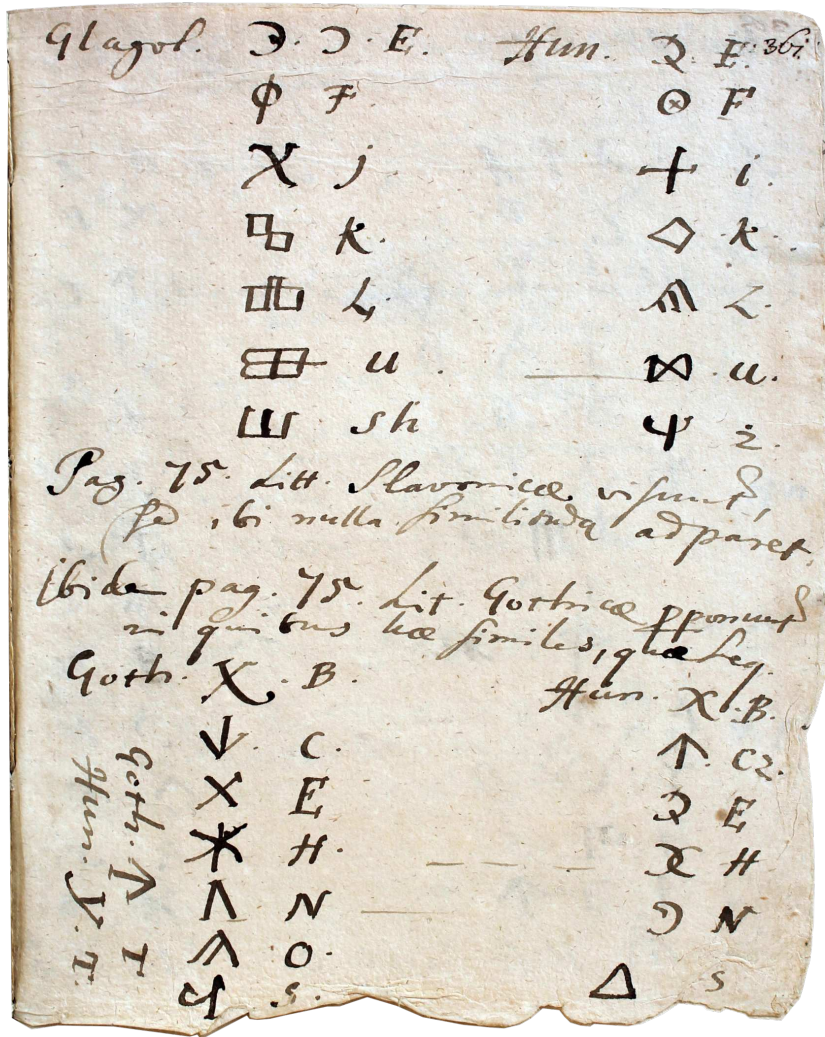 Glagol. Ͽ. Ͻ. E. Hun. E. 361.
ⱇ F. F
j. i.
k. k.
L. L.
u. u.
Ⱎ sh Ψ z.
Pag. 75. Litt. Slavonicæ visunt,
sed ibi nulla similitudo adparet,
Ibidem pag. 75. Lit. Gothicæ pponunt
in quibus hæ similes, quæ seq.
Goth. X. B. Hun. X. B.
↓. C. ↑. cz.
X E E
H. H
Λ N N
O.
s. Δ s
Goth. ↑ T
Hun. Y. T.